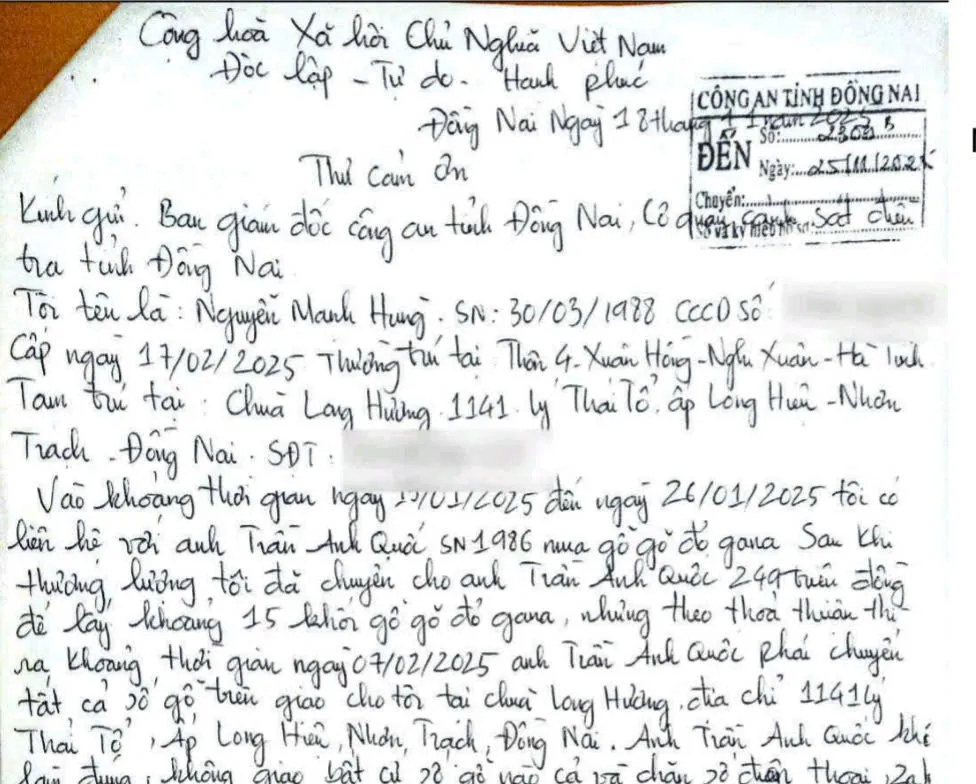 Cộng hoà Xã hội Chủ Nghĩa Việt Nam
Độc lập - Tự do - Hạnh phúc
Đồng Nai Ngày 18 tháng 11 năm 2025
CÔNG AN TỈNH ĐỒNG NAI
ĐẾN
Số:
Ngày: 25/11/2025
Chuyển:
Thư cảm ơn
Kính gửi. Ban giám đốc công an tỉnh Đồng Nai, Cơ quan cảnh sát điều
tra tỉnh Đồng Nai
Tôi tên là: Nguyễn Mạnh Hùng. SN: 30/03/1988 CCCD Số
Cấp ngày 17/02/2025 Thường trú tại Thôn 4. Xuân Hồng - Nghi Xuân - Hà Tĩnh
Tạm trú tại: Chùa Long Hương. 1141. Lý Thái Tổ. ấp Long Hiệu - Nhơn
Trạch - Đồng Nai. SĐT.
Vào khoảng thời gian ngày /01/2025 đến ngày 26/01/2025 tôi có
liên hệ với anh Trần Anh Quốc SN 1986 mua gỗ gõ đỏ gana Sau khi
thương lượng tôi đã chuyển cho anh Trần Anh Quốc 249 triệu đồng
để lấy khoảng 15 khối gỗ gõ đỏ gana, nhưng theo thoả thuận thì
ra khoảng thời gian ngày 07/02/2025 anh Trần Anh Quốc phải chuyển
tất cả số gỗ trên giao cho tôi tại chùa Long Hương. địa chỉ 1141 Lý
Thái Tổ, Ấp Long Hiệu, Nhơn Trạch, Đồng Nai. Anh Trần Anh Quốc
không giao bất cứ số gỗ nào cả và chặn số điện thoại